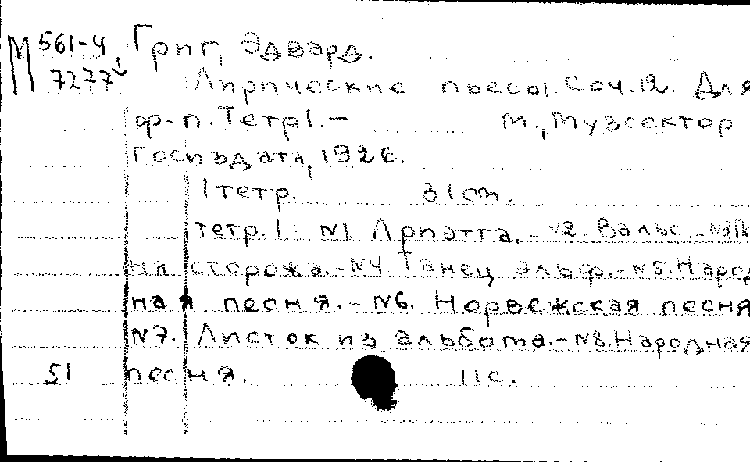 М 561-4 Григ, Эдвард.
7277 Лирические пьесы. Соч.12. Для
ф-п. Тетр1.- М., Музсектор
Госиздата, 1926.
1 тетр. 31 см.
тетр.1: N1 Ариэтта.- N2. Вальс.-N3 П
ня сторожа.-N4. Танец эльф.-N5. Народ
ная песня.-N6. Норвежская песня
N7. Листок из альбома.-N8. Народная
51 песня. 11с.